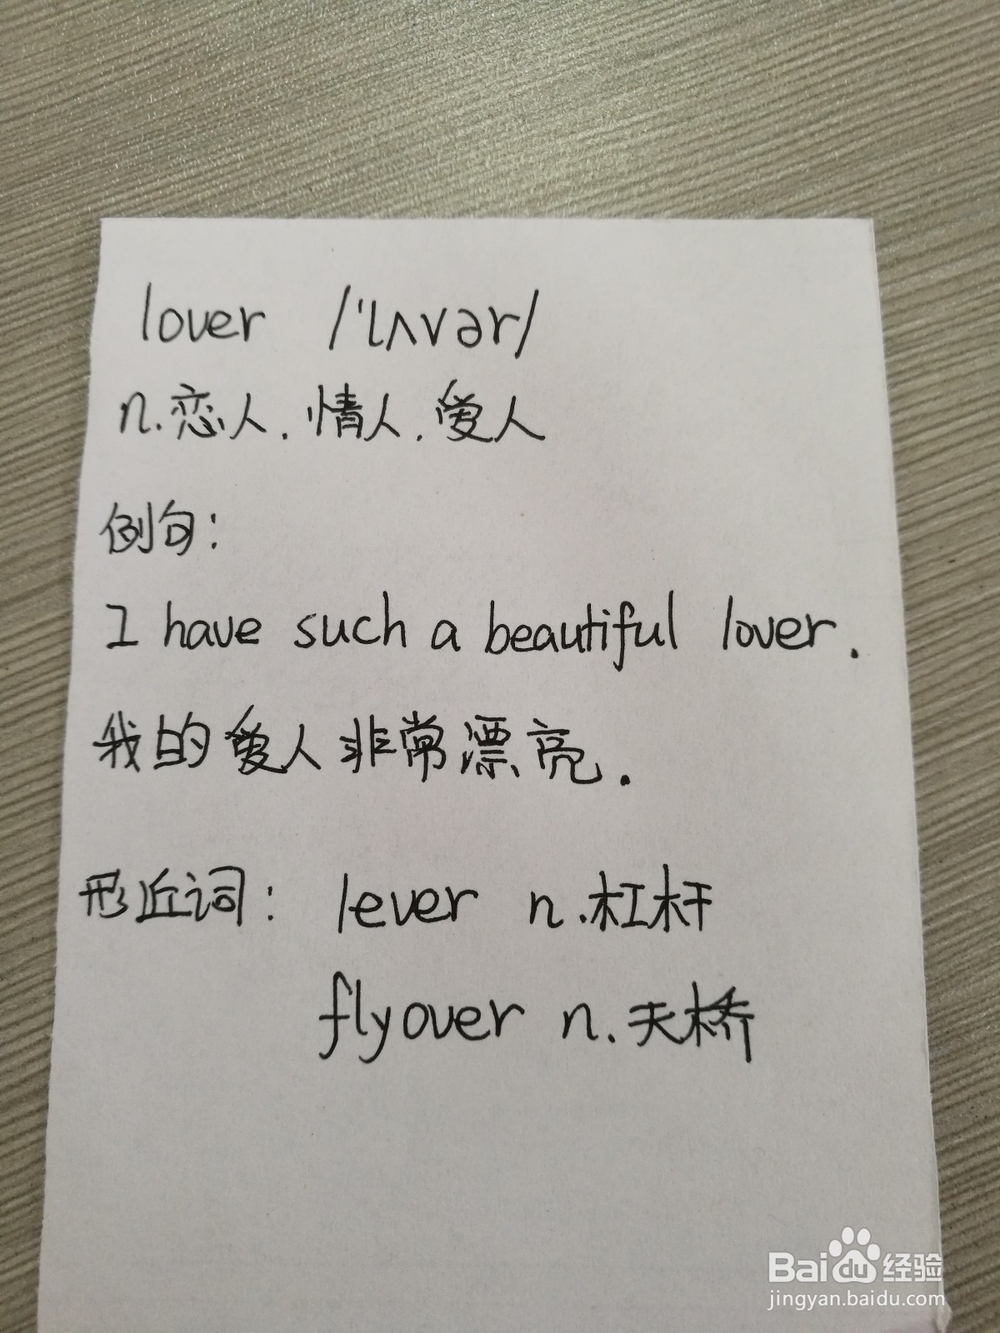 lover /'lʌvər/
n.恋人.情人.爱人
例句:
I have such a beautiful lover.
我的爱人非常漂亮.
形近词: lever n.杠杆
flyover n.天桥
Baidu经验
jingyan.baidu.com